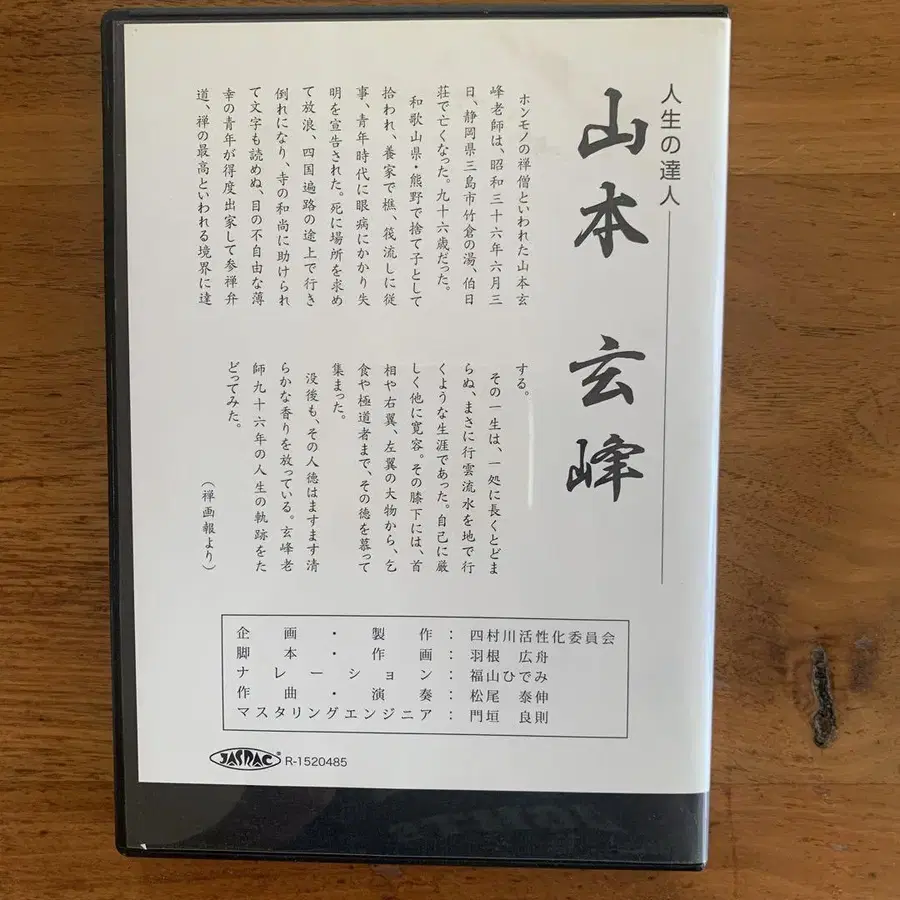 人生の達人
山本 玄峰
ホンモノの禅僧といわれた山本玄
峰老師は、昭和三十六年六月三
日、静岡県三島市竹倉の湯、伯日
荘で亡くなった。九十六歳だった。
和歌山県・熊野で捨て子として
拾われ、養家で樵、筏流しに従
事、青年時代に眼病にかかり失
明を宣告された。死に場所を求め
て放浪、四国遍路の途上で行き
倒れになり、寺の和尚に助けられ
て文字も読めぬ、目の不自由な薄
幸の青年が得度出家して参禅弁
道、禅の最高といわれる境界に達
する。
その一生は、一処に長くとどま
らぬ、まさに行雲流水を地で行
くような生涯であった。自己に厳
しく他に寛容。その膝下には、首
相や右翼、左翼の大物から、乞
食や極道者まで、その徳を慕って
集まった。
没後も、その人徳はますます清
らかな香りを放っている。玄峰老
師九十六年の人生の軌跡をた
どってみた。
（禅画報より）
企画・製作：四村川活性化委員会
脚本・作画：羽根 広舟
ナレーション：福山ひでみ
作曲・演奏：松尾 泰伸
マスタリングエンジニア：門垣 良則
JASRAC® R-1520485